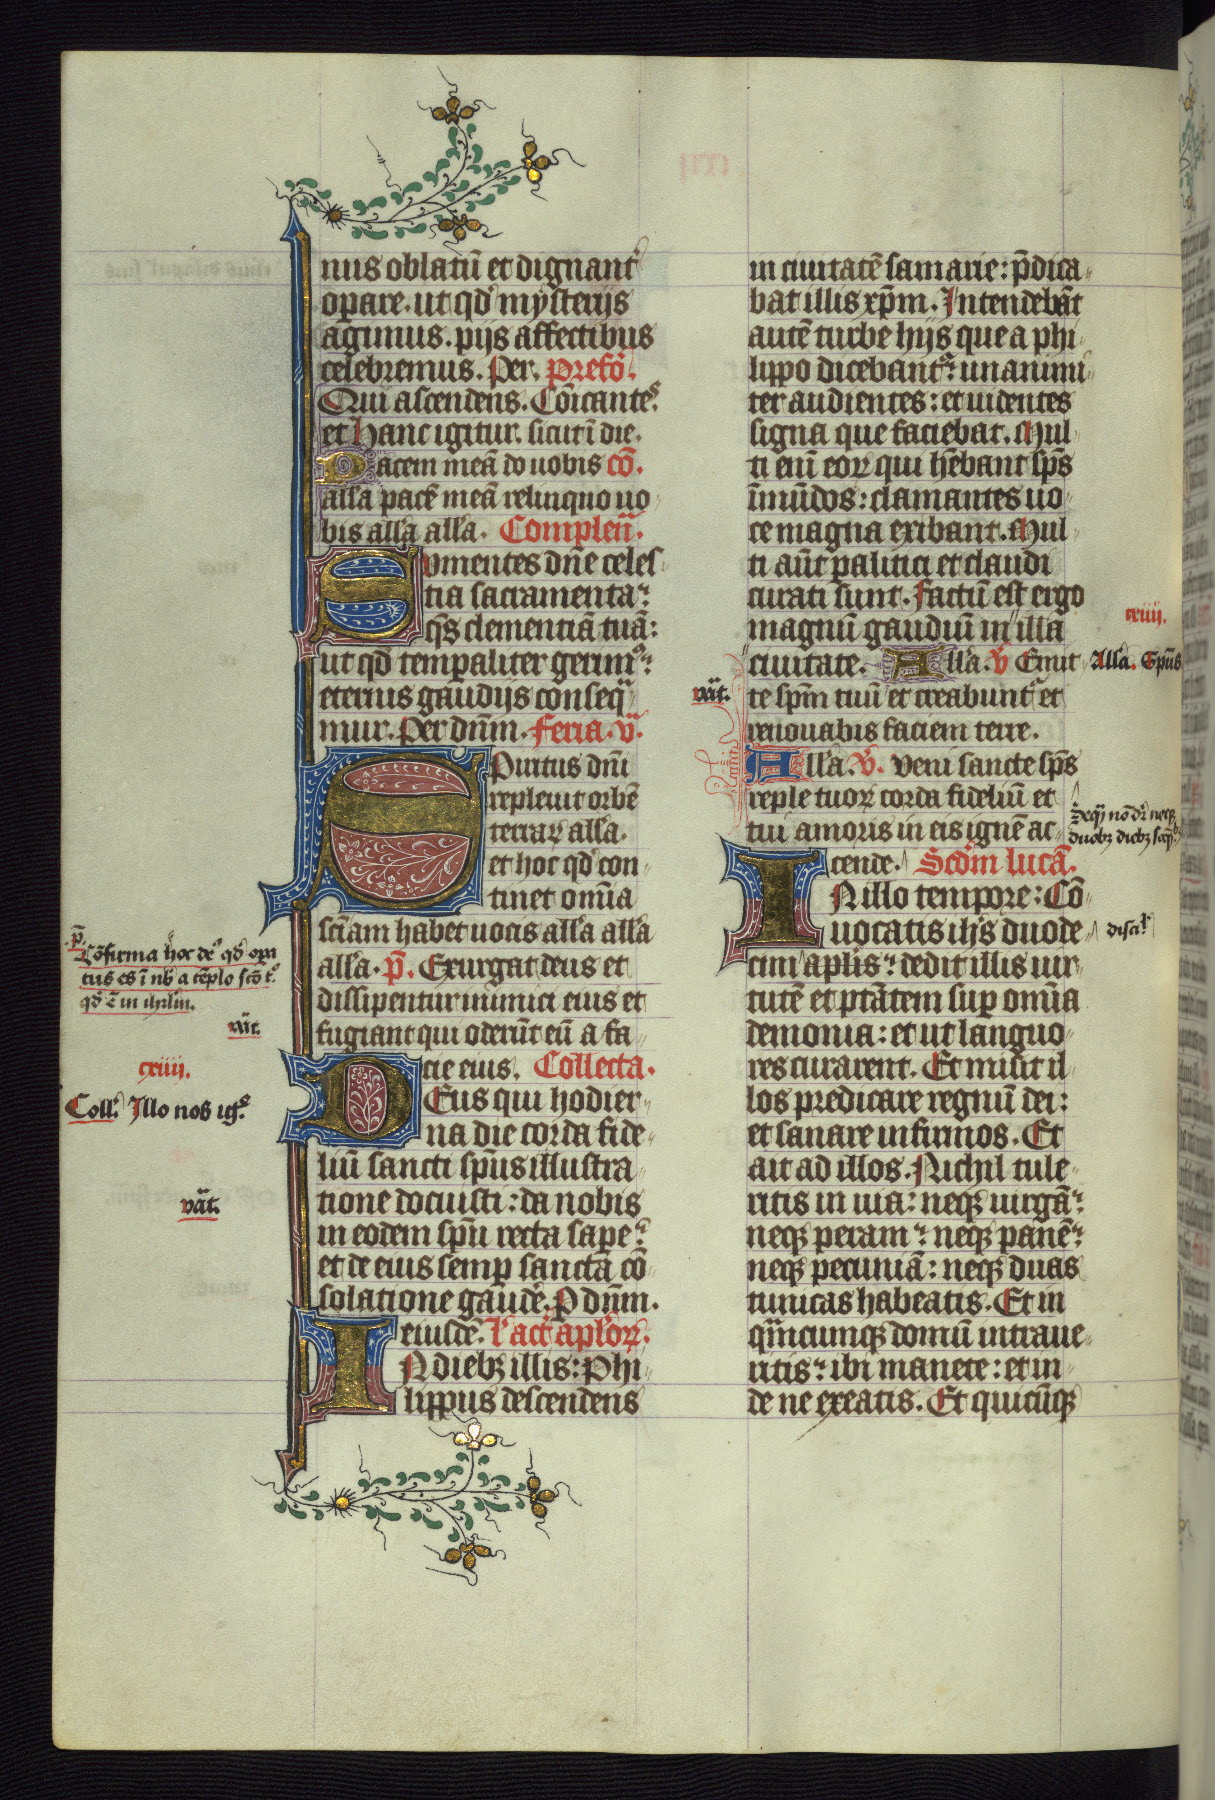 nus oblatū et dignant᷑
opare. ut qd' mysterijs
agimus. pijs affectibus
celebremus. Per. Prefō.
Qui ascendens. Cōicantes.
et Hanc igitur. sicut ī die.
Pacem meā do uobis cō.
all'a pacē meā relinquo uo
bis all'a all'a. Complen̄.
Sumentes dn̄e celes
tia sacramenta:
qs̄ clementiā tuā:
ut qd' temp̄aliter gerim9:
eternis gaudijs conseq̄
mur. Per dn̄m. Feria. v.
Spiritus dn̄i
repleuit orbē
terrar̄ all'a.
et hoc qd' con
tinet omīa
scīam habet uocis all'a all'a
all'a. p̄. Exurgat deus et
dissipentur inimici eius et
fugiant qui oderūt eū a fa
cie eius. Collecta.
Deus qui hodier
na die corda fide
liū sancti spūs illustra
tione docuisti: da nobis
in eodem spū recta sape:
et de eius semp̄ sancta cō
solatione gaudē. P dn̄m.
eiusdē. l' act' apl'or̄.
IN dieb; illis: Phi
lippus descendens
in ciuitatē samarie: p̄dica
bat illis xp̄m. Intendebāt
autē turbe hijs que a phi
lippo dicebant᷑: unanimi
ter audientes: et uidentes
signa que faciebat. Mul
ti eni̅ eor̄ qui hēbant sps̄
īmūdos: clamantes uo
ce magna exibant. Mul
ti aūt palitici et claudi
curati sunt. Factū est ergo
magnū gaudiū in illa
ciuitate. All'a. v̄ Emit
te spm̄ tuū et creabunt᷑ et
renouabis faciem terre.
All'a. v̄. Veni sancte sps̄
reple tuor̄ corda fideliū et
tui amoris in eis ignē ac
cende. Scdm̄ lucā.
IN illo tempore: Cō
uocatis ihs̄ duode
cim apl'is: dedit illis uir
tutē et ptātem sup omīa
demonia: et ut languo
res curarent. Et misit il
los predicare regnū dei:
et sanare infirmos. Et
ait ad illos. Nichil tule
ritis in uia: neq; uirgā:
neq; peram: neq; panē:
neq; pecuniā: neq; duas
tunicas habeatis. Et in
qm̄cumq; domū intraue
ritis: ibi manete: et in
de ne exeatis. Et quicūq;
p̄.
Cōfirma hoc de9 qd' opa
tus es ī nb' a tēplo scō t.
qd' ē in ihrl̄m.
vāt.
cxiiii.
Coll. Illo nos ig.
vāt.
vāt.
cxiiii.
All'a. Spūs
Seqn̄ nō dr̄ neq;
duob; dieb; seq̄
disci.